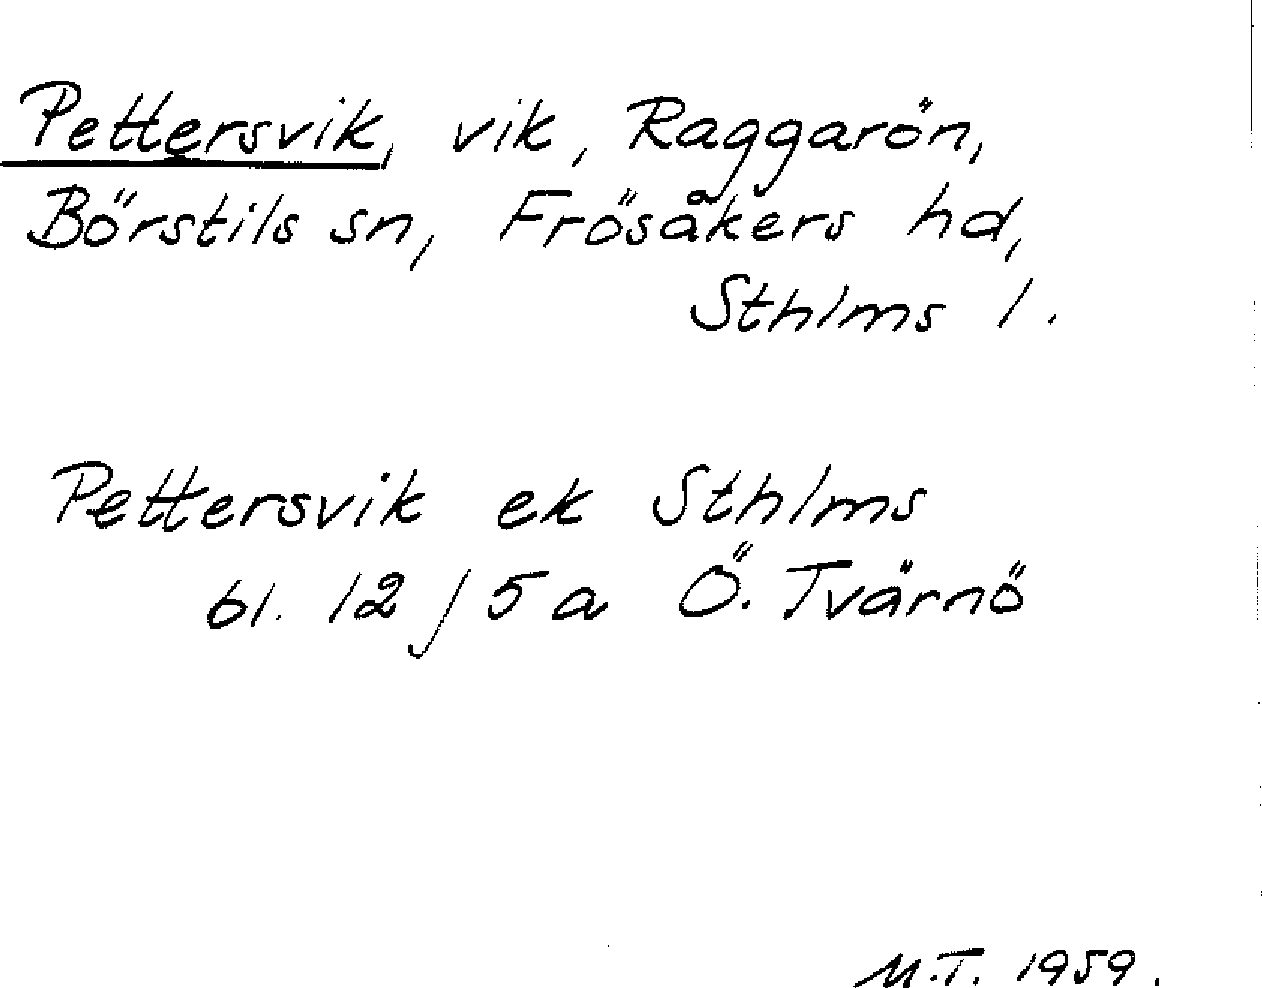 Pettersvik, vik, Raggarön,
Börstils sn, Frösåkers hd,
Sthlms l.
Pettersvik ek Sthlms
bl. 12 / 5 a Ö. Tvärnö
M.T. 1959.